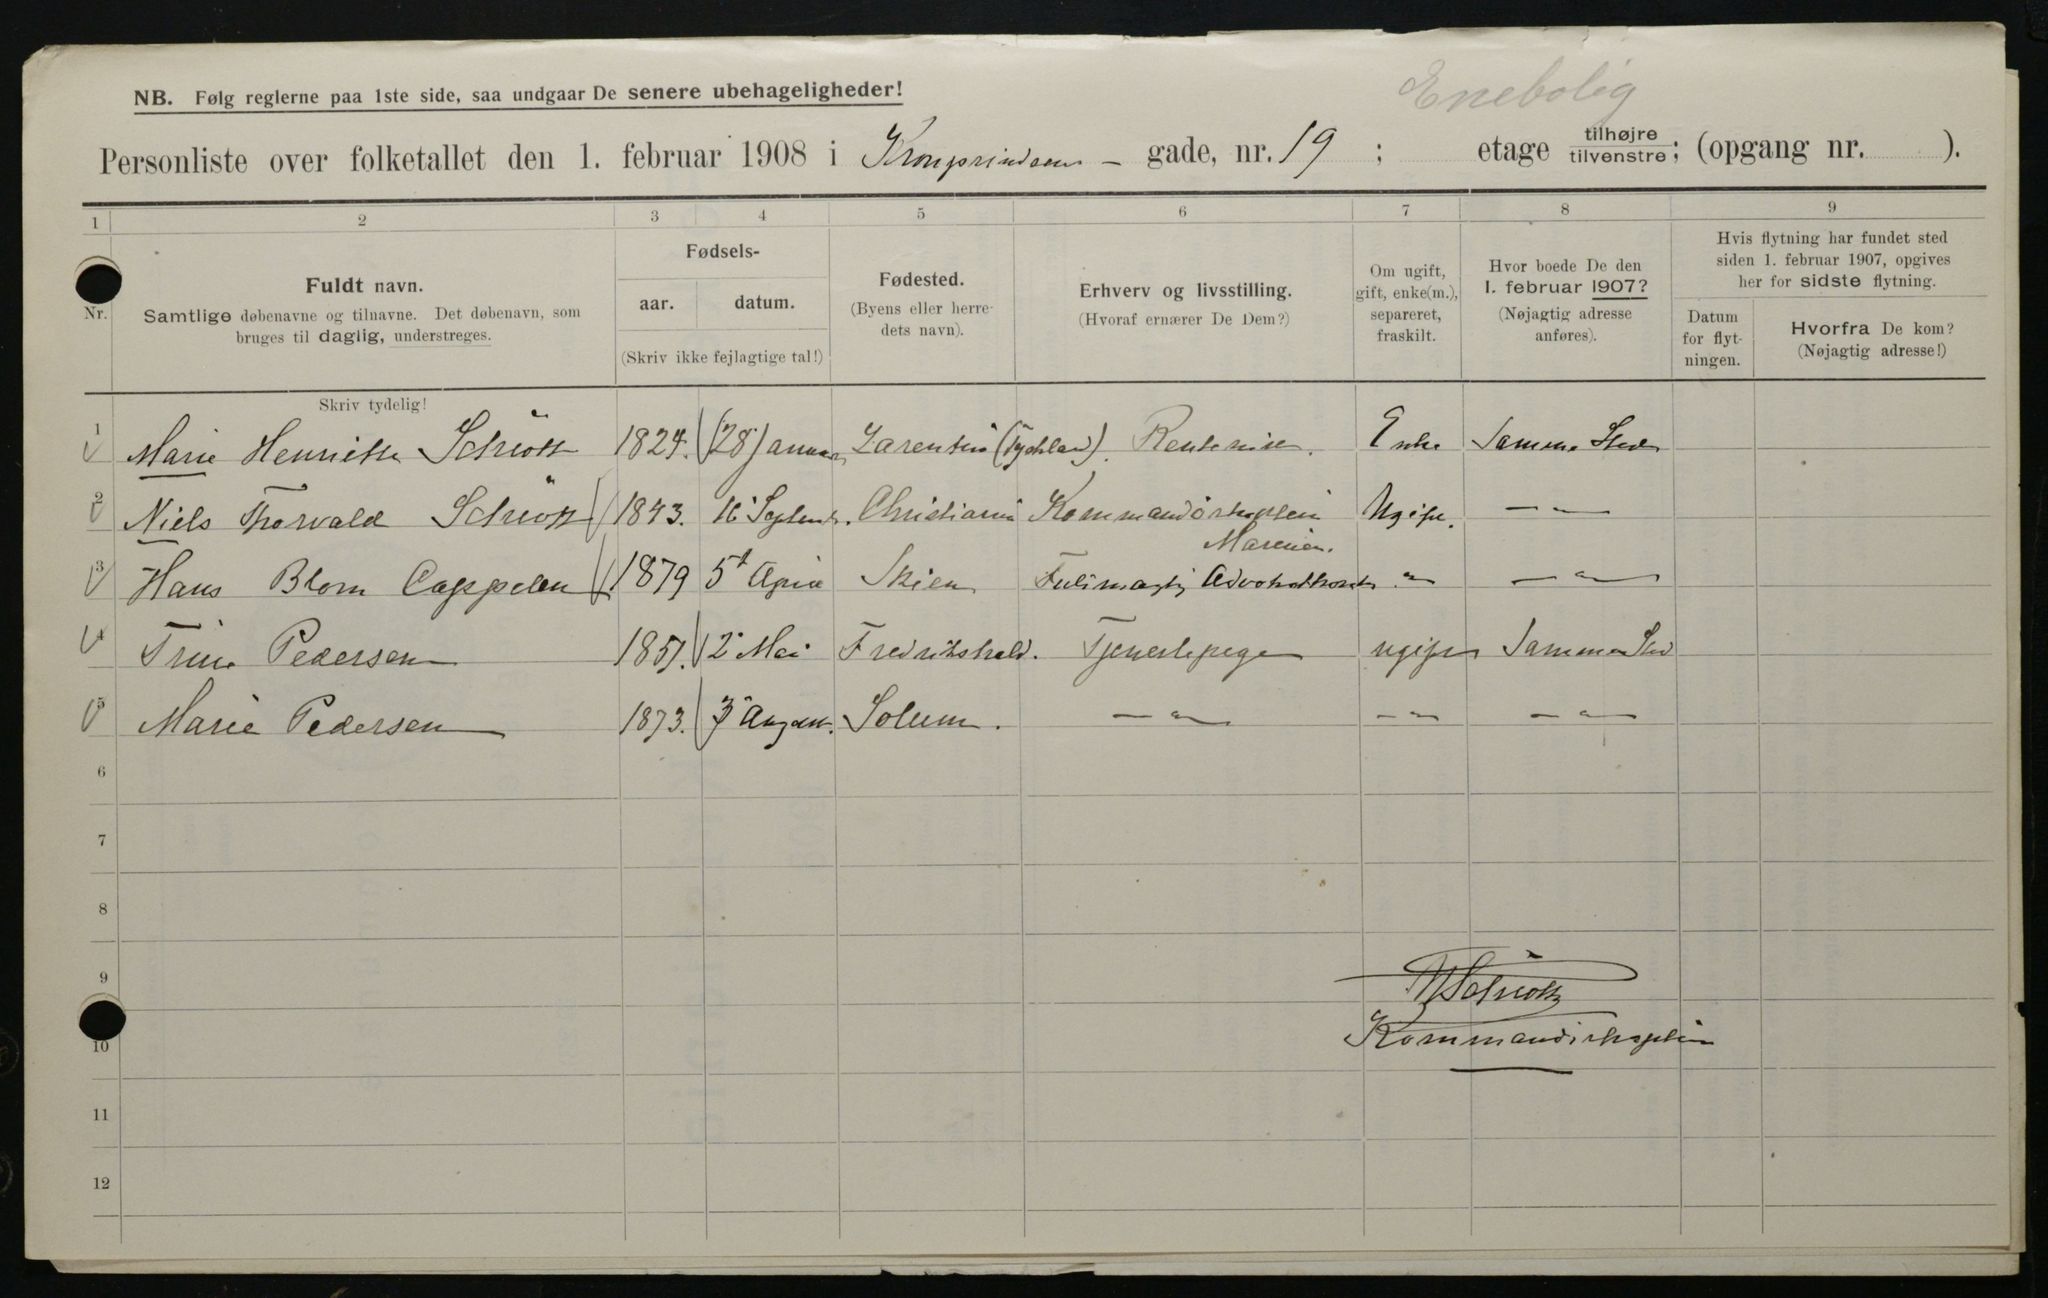 Enebolig
NB. Følg reglerne paa 1ste side, saa undgaar De senere ubehageligheder!
Personliste over folketallet den 1. februar 1908 i Kronprindsens - gade, nr. 19 ; etage tilhøjre / tilvenstre; (opgang nr. ).
1 2 3 4 5 6 7 8 9
Nr.
Fuldt navn.
Samtlige døbenavne og tilnavne. Det døbenavn, som
bruges til daglig, understreges.
Skriv tydelig!
Fødsels-
aar. datum.
(Skriv ikke fejlagtige tal!)
Fødested.
(Byens eller herre-
dets navn).
Erhverv og livsstilling.
(Hvoraf ernærer De Dem?)
Om ugift,
gift, enke(m.),
separeret,
fraskilt.
Hvor boede De den
1. februar 1907?
(Nøjagtig adresse
anføres).
Hvis flytning har fundet sted
siden 1. februar 1907, opgives
her for sidste flytning.
Datum
for flyt-
ningen.
Hvorfra De kom?
(Nøjagtig adresse!)
1 Marie Henriette Schiötz 1824. 28 Januar (Tydskland). Rentenise. Enke Samme Sted
2 Niels Thorvald Schiötz 1843. 16 Septemb. Christiania Kommandörkaptein Ugift. — " —
Marinen.
3 Hans Blom Cappelen 1879 5t April Skien Fuldmægtig Advokatkont. " — " —
4 Trine Pedersen 1851. 2 Mai Fredrikshald. Tjenestepige ugift Samme Sted
5 Marie Pedersen 1873. 3 August. Solum. — " — — " — — " —
6
7
8
9
10
11
12
Schiötz
Kommandörkaptein